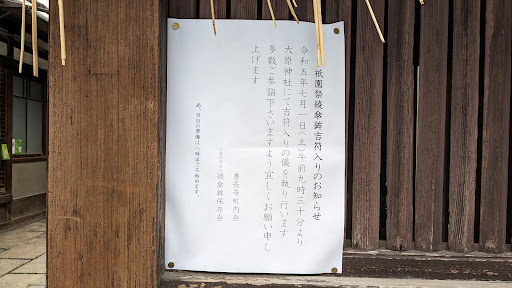 祇園祭綾傘鉾吉符入りのお知らせ
令和五年七月一日(土)午前九時三十分より
大原神社にて吉符入りの儀を執り行います
多数ご参詣下さいますよう宜しくお願い申し
上げます
善長寺町内会
綾傘鉾保存会
尚、当日の準備は八時半ごろ始めます。